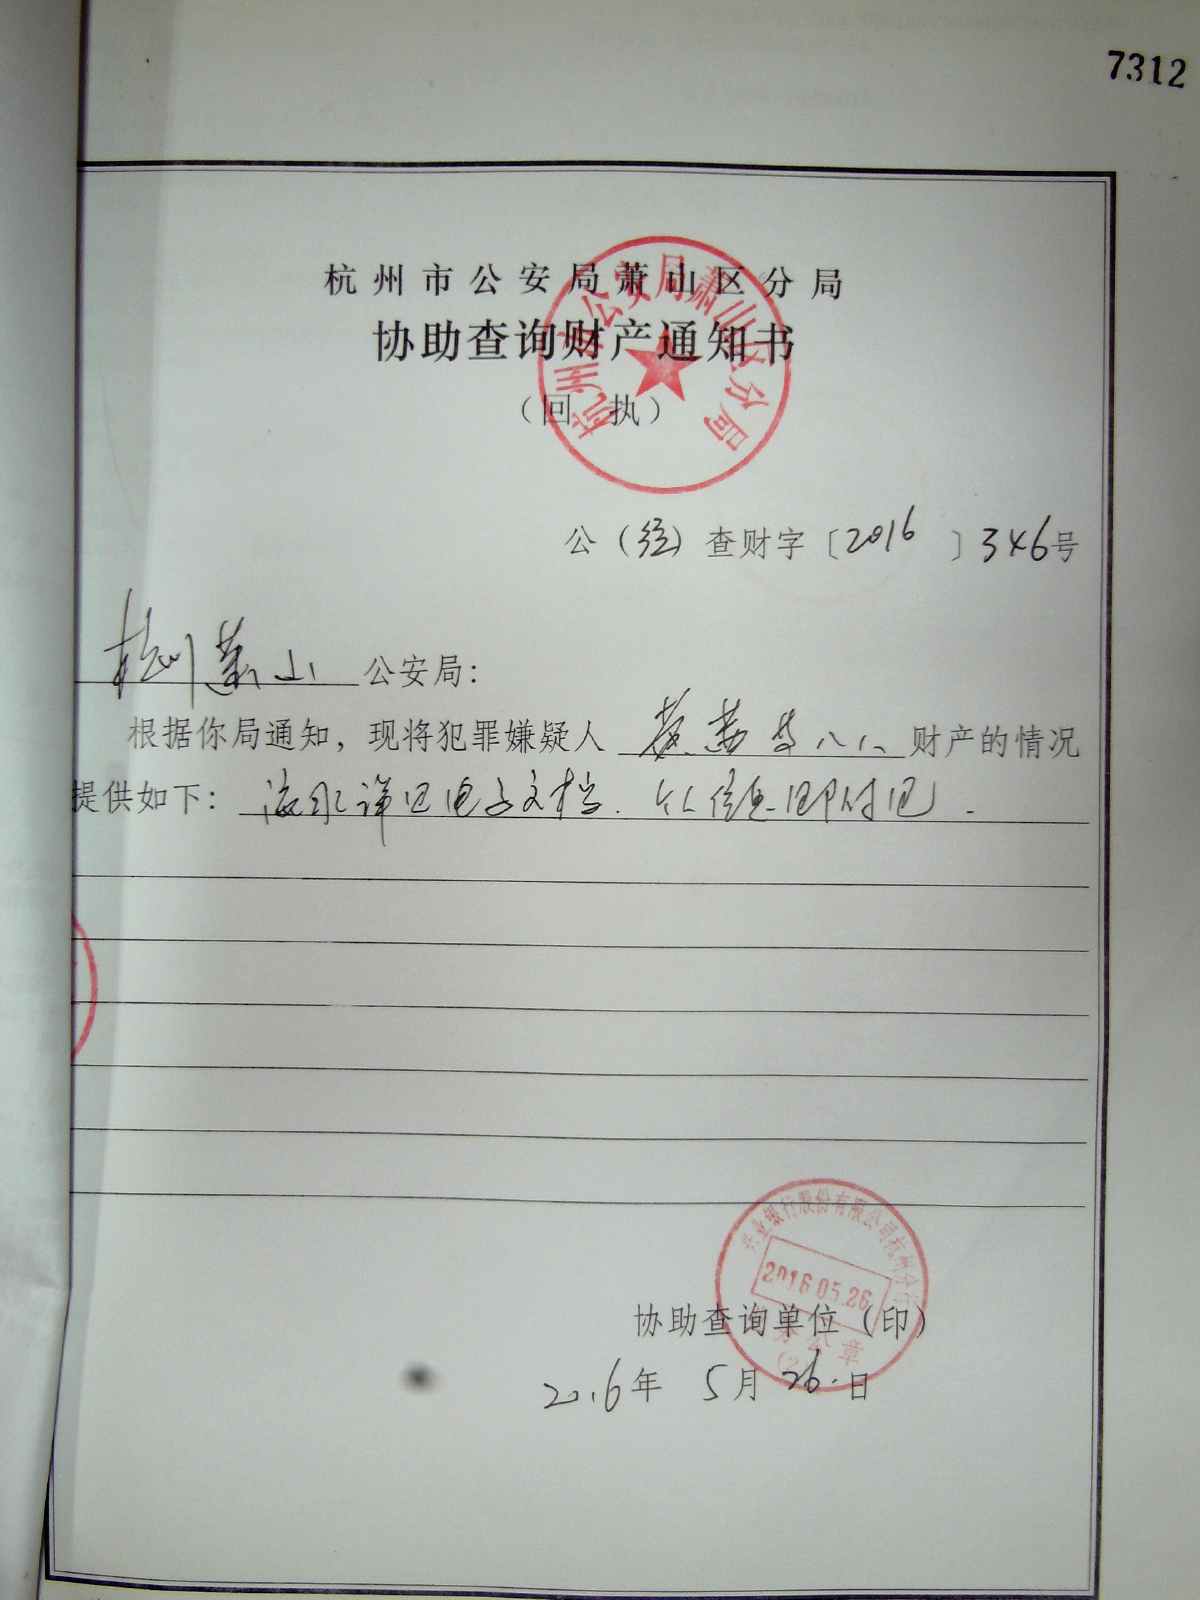 7312
杭州市公安局萧山区分局
协助查询财产通知书
（回 执）
杭州市公安局萧山区分局
公（经）查财字〔2016〕346号
杭州萧山公安局：
根据你局通知，现将犯罪嫌疑人 等八人 财产的情况
提供如下：流水详见电子文档. 信息即附见.
兴业银行股份有限公司杭州分行
2016.05.26
办公章
(2)
协助查询单位（印）
2016年 5月 26日